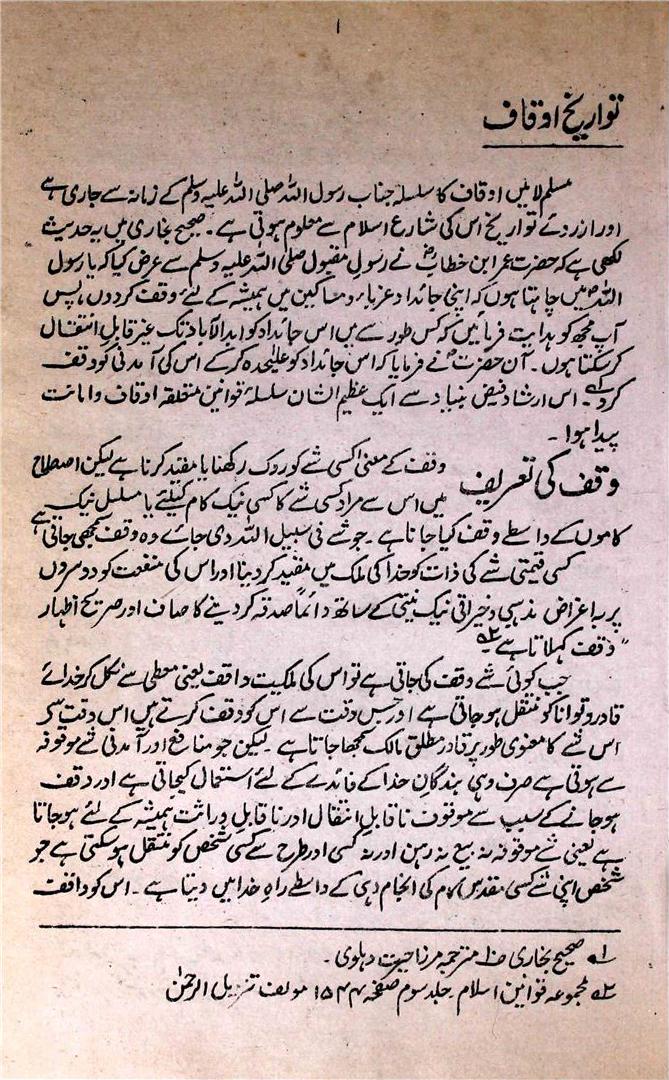 ۱
تواریخ اوقاف
مسلمانوں میں اوقاف کا سلسلہ جناب رسول اللہ صلی اللہ علیہ وسلم کے زمانہ سے جاری ہے
اور ازروئے تواریخ اس کی شارع اسلام سے معلوم ہوتی ہے۔ صحیح بخاری میں یہ حدیث
لکھی ہے کہ حضرت عمر ابن خطابؓ نے رسولِ مقبول صلی اللہ علیہ وسلم سے عرض کیا کہ یا رسول
اللہؐ میں چاہتا ہوں کہ اپنی جائداد غرباء و مساکین میں ہمیشہ کے لئے وقف کردوں، پس
آپ مجھ کو ہدایت فرمائیں کہ کس طور سے میں اس جائداد کو ابدالآباد تک غیر قابلِ انتقال
کر سکتا ہوں۔ آں حضرتؐ نے فرمایا کہ اس جائداد کو علیٰحدہ کرکے اس کی آمدنی کو وقف
کردے۱؎۔ اس ارشاد فیض بنیاد سے ایک عظیم الشان سلسلۂ قوانین متعلقہ اوقاف و امانت
پیدا ہوا۔
وقف کی تعریف
وقف کے معنیٰ کسی شے کو روک رکھنا یا مقید کرنا ہے لیکن اصطلاح
میں اس سے مراد کسی شے کا کسی نیک کام کیلئے یا مسلسل نیک
کاموں کے واسطے وقف کیا جانا ہے۔ جو شے فی سبیل اللہ دی جائے وہ وقف سمجھی جاتی ہے
کسی قیمتی شے کی ذات کو خدا کی ملک میں مقید کر دینا اور اس کی منفعت کو دوسروں
پر بہ اغراض مذہبی و خیراتی نیک نیتی کے ساتھ دائماً صدقہ کر دینے کا صاف اور صریح اظہار
”وقف کہلاتا ہے۲؎“
جب کوئی شے وقف کی جاتی ہے تو اس کی ملکیت واقف یعنی معطی سے نکل کر خدائے
قادر و توانا کو منتقل ہو جاتی ہے اور جس وقت سے اس کو وقف کرتے ہیں اس وقت سے
اس شے کا معنوی طور پر قادر مطلق مالک سمجھا جاتا ہے۔ لیکن جو منافع اور آمدنی شے موقوفہ
سے ہوتی ہے صرف وہی بندگانِ خدا کے فائدے کے لئے استعمال کیجاتی ہے اور وقف
ہو جانے کے سبب سے موقوف ناقابلِ انتقال اور ناقابلِ وراثت ہمیشہ کے لئے ہو جاتا
ہے یعنی شے موقوفہ نہ بیع نہ رہن اور نہ کسی اور طرح سے کسی شخص کو منتقل ہو سکتی ہے جو
شخص اپنی شے کسی مقدس کام کی انجام دہی کے واسطے راہِ خدا میں دیتا ہے۔ اس کو واقف
۱؎ صحیح بخاری مترجمہ مرزا حیرت دہلوی۔
۲؎ مجموعہ قوانین اسلام۔ جلد سوم صفحہ ۱۵۴۴ مولف تنزیل الرحمٰن